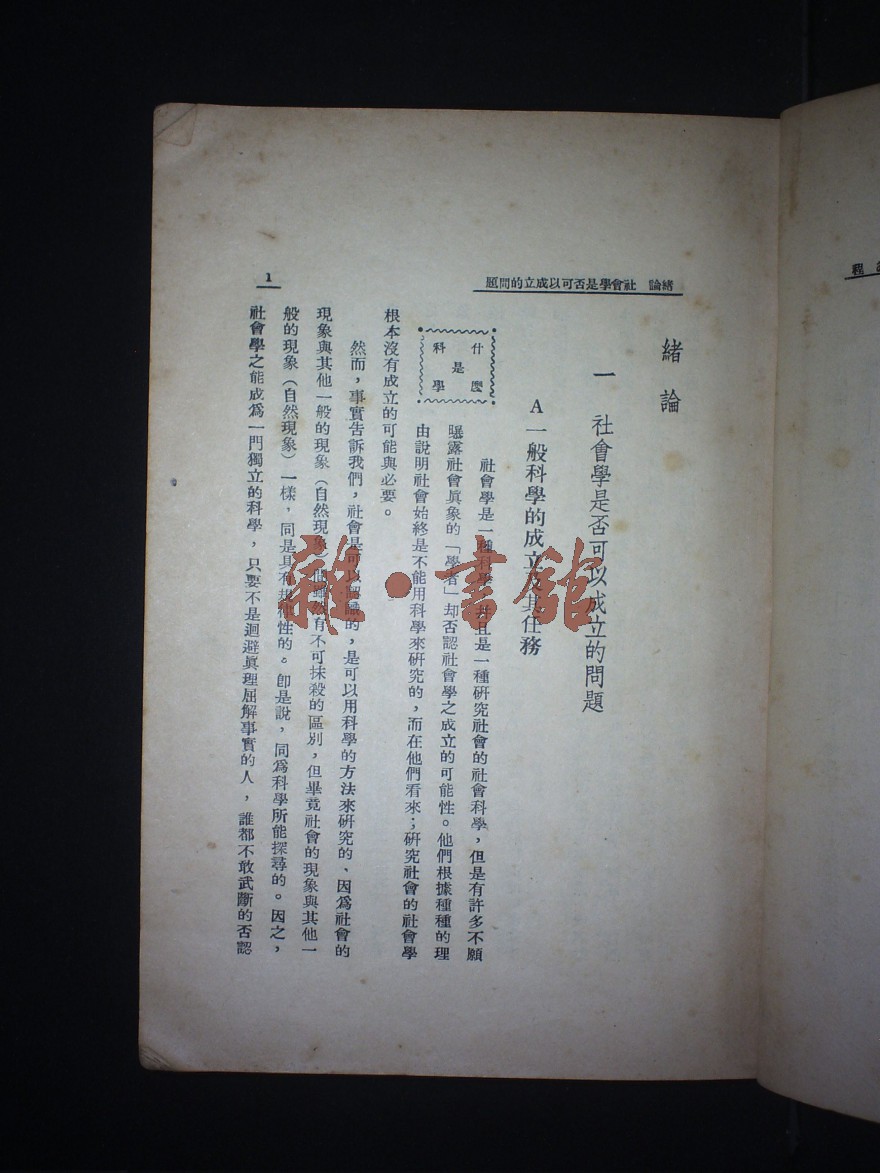 程
緒論 社會學是否可以成立的問題
1
緒論
一 社會學是否可以成立的問題
A 一般科學的成立及其任務
什麼是科學
社會學是一種科學,并且是一種研究社會的社會科學,但是有許多不願
曝露社會眞象的「學者」却否認社會學之成立的可能性。他們根據種種的理
由說明社會始終是不能用科學來研究的,而在他們看來;研究社會的社會學
根本沒有成立的可能與必要。
然而,事實告訴我們,社會是可以認識的,是可以用科學的方法來研究的、因爲社會的
現象與其他一般的現象(自然現象)間雖然有不可抹殺的區別,但畢竟社會的現象與其他一
般的現象(自然現象)一樣,同是具有規律性的。卽是說,同爲科學所能探尋的。因之,
社會學之能成爲一門獨立的科學,只要不是迴避眞理屈解事實的人,誰都不敢武斷的否認
雜·書館